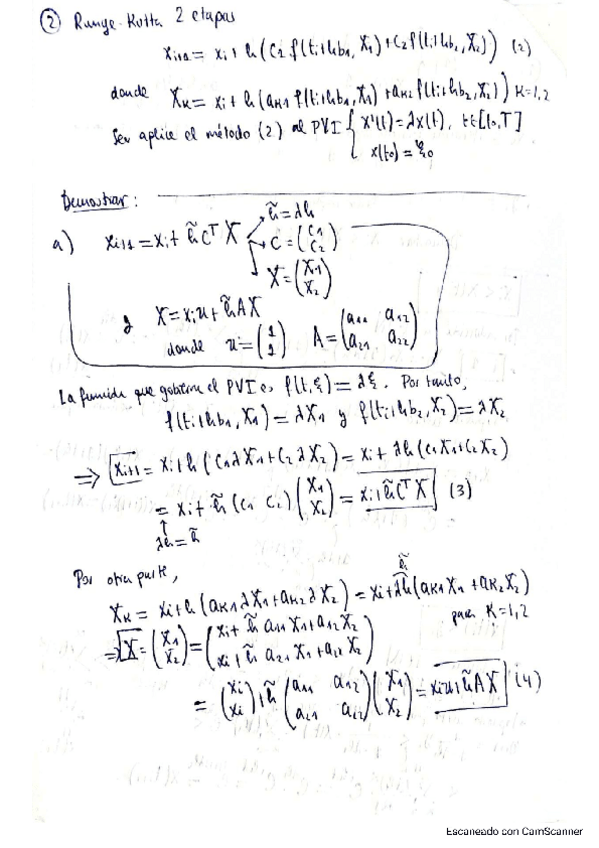 ② Runge-Kutta 2 etapas
x_{i+1} = x_i + h (c_1 f(t_i+hb_1, X_1) + c_2 f(t_i+hb_2, X_2)) (2)
donde X_K = x_i + h (a_{K1} f(t_i+hb_1, X_1) + a_{K2} f(t_i+hb_2, X_2)) K=1,2
Ser aplica el método (2) al PVI { x'(t) = λx(t), t∈[t_0,T]
x(t_0) = ξ_0
Demostrar:
a) x_{i+1} = x_i + h̃ C^T X
h̃ = λh
C = (c_1 c_2)
X = (X_1 X_2)
y X = x_i u + h̃AX
donde u = (1 1) A = (a_11 a_12 a_21 a_22)
La función que gobierna el PVI es f(t,ξ) = λξ. Por tanto,
f(t_i+hb_1, X_1) = λX_1 y f(t_i+hb_2, X_2) = λX_2
⇒ x_{i+1} = x_i + h (c_1 λX_1 + c_2 λX_2) = x_i + λh (c_1X_1 + c_2X_2)
= x_i + h̃ (c_1 c_2) (X_1 X_2) = x_i + h̃C^T X (3)
↑
λh = h̃
Por otra parte,
h̃
X_K = x_i + h (a_{K1} λX_1 + a_{K2} λX_2) = x_i + λh (a_{K1}X_1 + a_{K2}X_2)
para K=1,2
⇒ X = (X_1 X_2) = (x_i + h̃ a_11 X_1 + a_12 X_2
x_i + h̃ a_21 X_1 + a_22 X_2)
= (x_i x_i) + h̃ (a_11 a_12 a_21 a_22) (X_1 X_2) = x_i u + h̃AX (4)
Escaneado con CamScanner